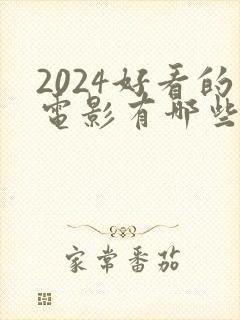 2024好看的
电影有哪些
家常番茄